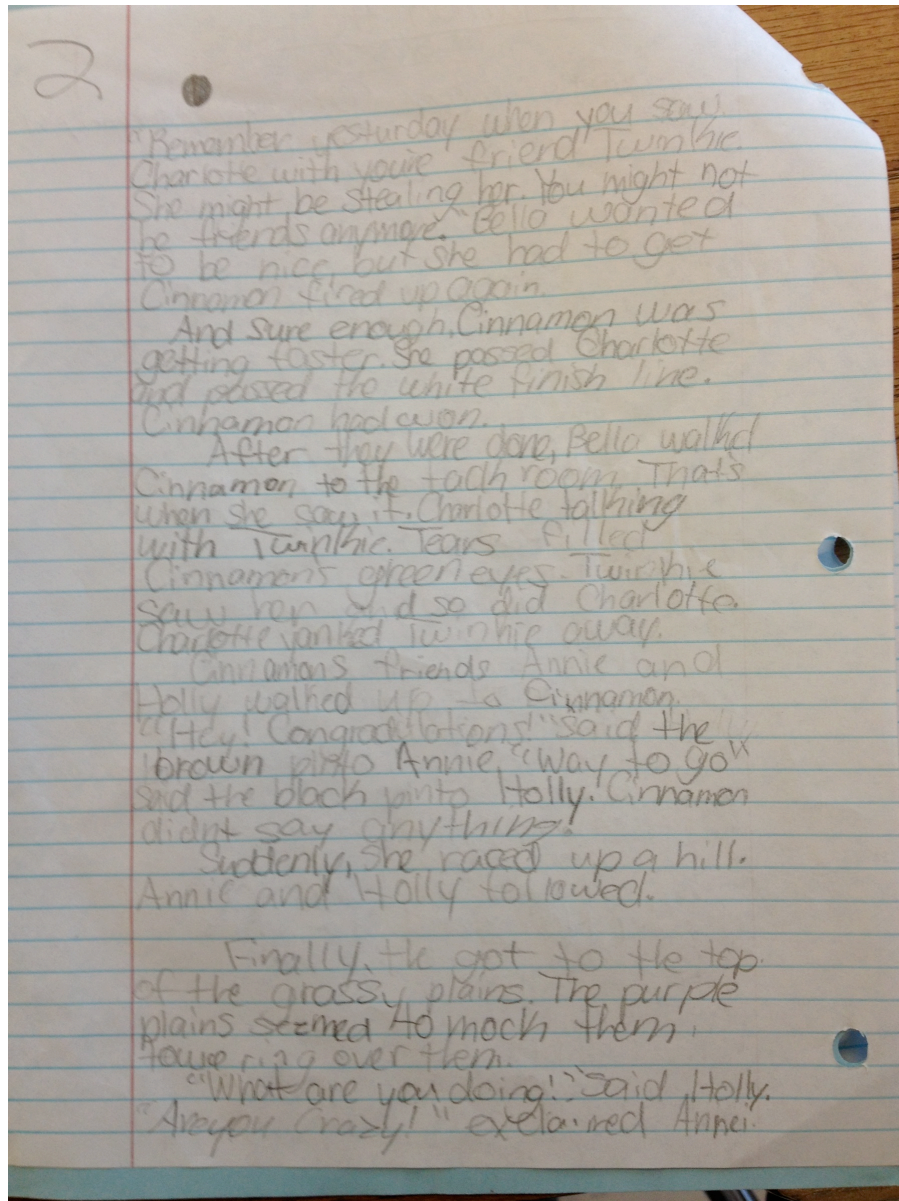 2
"Remember yesturday when you saw
Charlotte with youre friend Twinkie.
She might be stealing her. You might not
be friends anymore." Bella wanted
to be nice, but she had to get
Cinnamon fired up again.
And sure enough, Cinnamon was
getting faster. She passed Charlotte
and passed the white finish line.
Cinnamon had won.
After they were done, Bella walked
Cinnamon to the tack room. That's
when she saw it. Charlotte talking
with Twinkie. Tears filled
Cinnamon's green eyes. Twinkie
saw her and so did Charlotte.
Charlotte yanked Twinkie away.
Cinnamons friends Annie and
Holly walked up to Cinnamon.
"Hey! Congradulations!" said the
brown pinto Annie. "Way to go"
said the black pinto Holly. Cinnamon
didnt say anything!
Suddenly, She raced up a hill.
Annie and Holly followed.
Finally, the got to the top.
of the grassy plains. The purple
plains seemed to mock them,
towering over them.
"What are you doing!" said Holly.
"Are you Crazy!" exclaimed Annei.